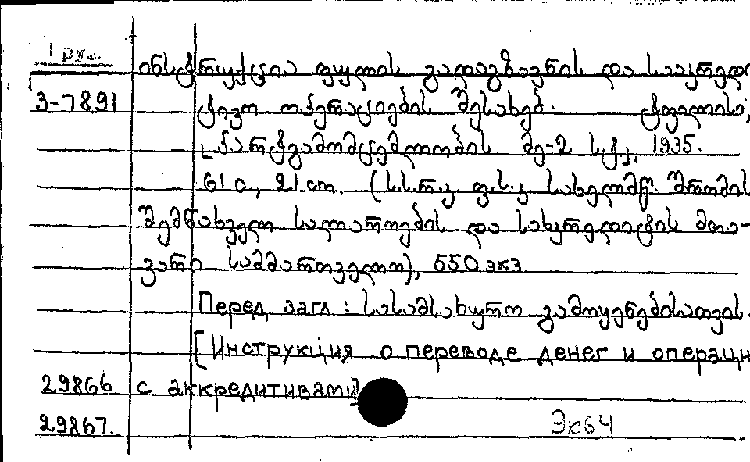 1 рус.
ინსტრუქცია ფულის გადაგზავნის და სააკრედი
3-7891 ტივო ოპერაციების შესახებ. ტფილისი,
[პარტგამომცემლობის მე-2 სტ.], 1935.
61 с., 21 cm. (სსრკ ფ.ს.კ სახელმწ. შრომის
შემნახველ სალაროების და სახკრედიტის მთა-
ვარი სამმართველო), 550 экз.
Перед загл: სასამსახურო გამოყენებისათვის.
[Инструкция о переводе денег и операци
29866 с аккредитивами]
29867. Эс64